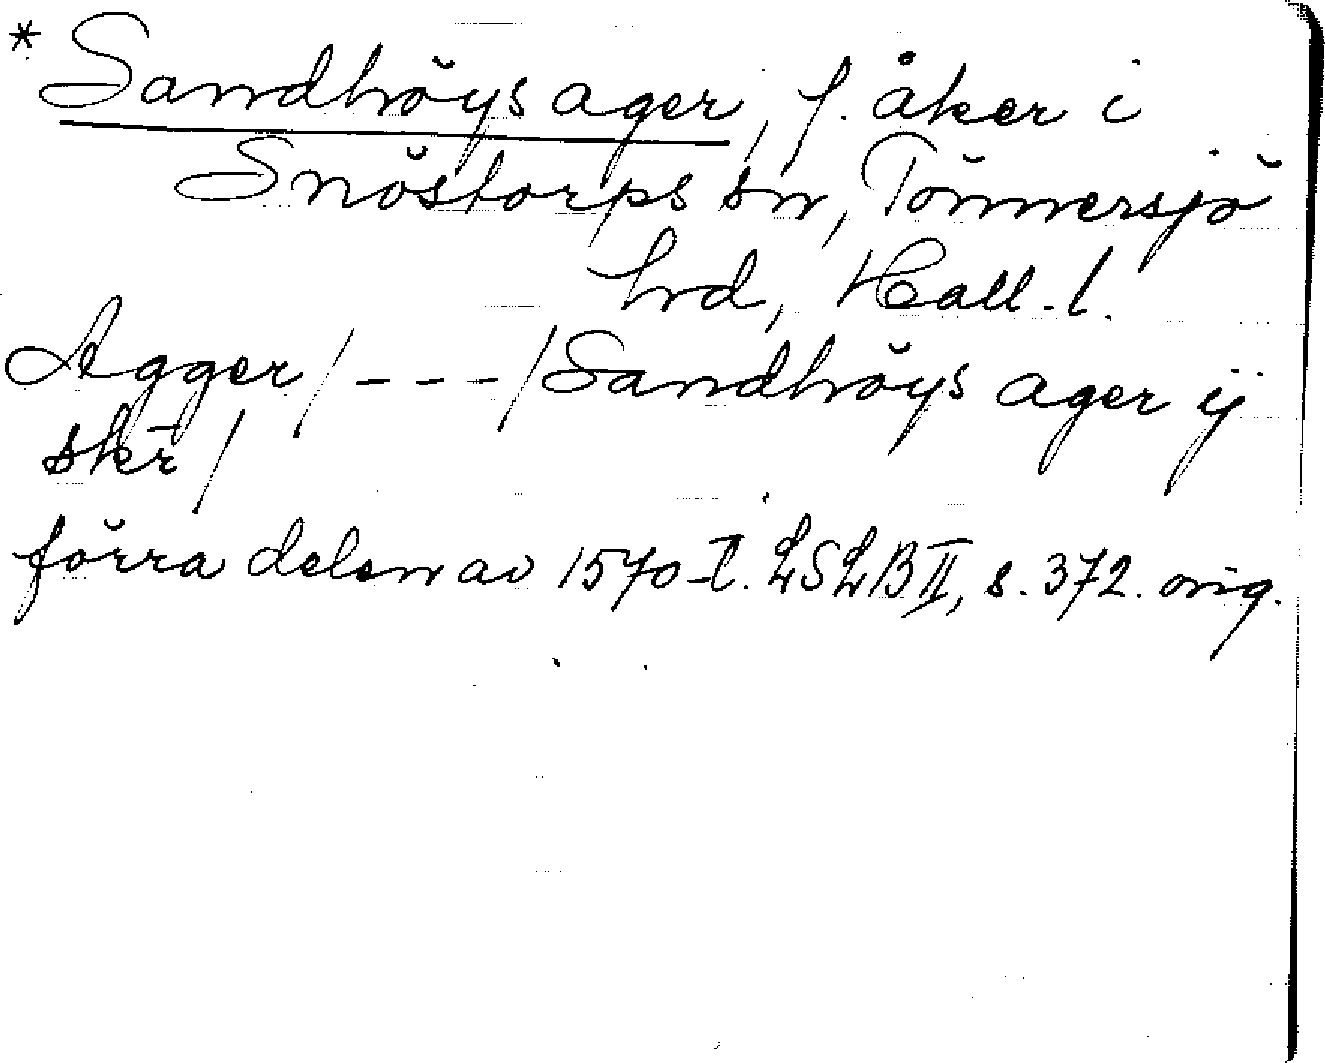 * Sandhöys ager, f. åker i
Snöstorps sn, Tönnersjö
hd, Hall. l.
Agger/---/Sandhöys ager ij
skr̄/
förra delen av 1570-t. LSLB II, s. 372. orig.